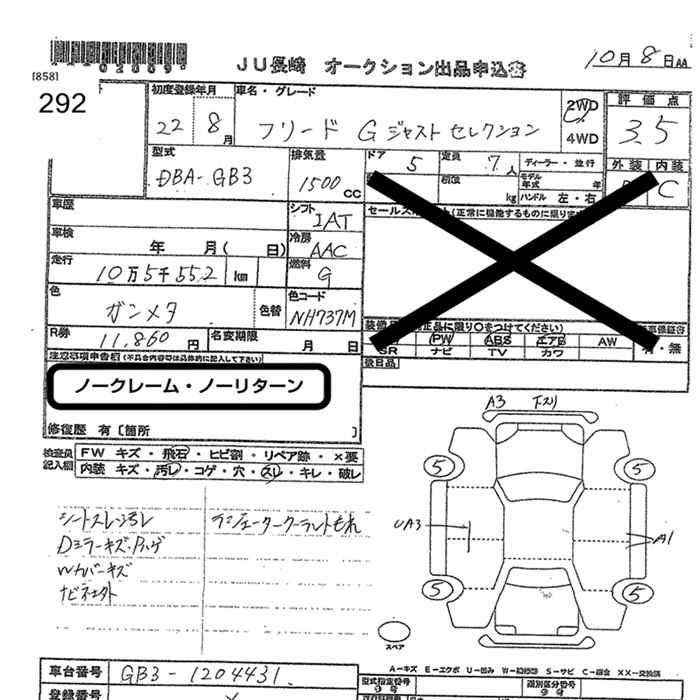 JU長崎 オークション出品申込書
10月8日AA
[858]
292
初度登録年月
22 8月
車名・グレード
フリード G ジャストセレクション
2WD
4WD
評価点
3.5
外装 内装
C
型式
DBA-GB3
排気量
1500 CC
ドア 5
定員 7人
ディーラー・並行
モデル年式 年
積載 kg
ハンドル 左・右
車歴
シフト IAT
車検 年 月( 日)
冷房 AAC
走行 10万5千552 km
燃料 G
色 ガンメタ
色替
色コード NH737M
R券 11,860円
名変期限 月 日
(正常に機能するものに限ります)
(正品に限り○をつけてください)
PW ABS エアB AW
SR ナビ TV カワ
有・無
後日品
注意事項申告欄(不具合内容等は具体的に記入して下さい)
ノークレーム・ノーリターン
修復歴 有〔箇所 〕
検査員記入欄
FW キズ・飛石・ヒビ割・リペア跡・×要
内装 キズ・汚レ・コゲ・穴・スレ・キレ・破レ
シートスレ
ラジエータークーラントもれ
Dミラーキズ
Wカバーキズ
A3 下スリ
5
5
UA3
A1
5
5
スペア
A-キズ E-エクボ U-凹み S-サビ XX-交換済
車台番号 GB3-1204431
登録番号
型式指定番号
類別区分番号